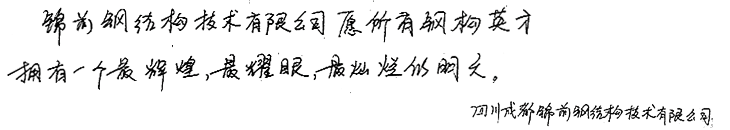 锦前钢结构技术有限公司愿所有钢构英才
拥有一个最辉煌,最耀眼,最灿烂的明天。
四川成都锦前钢结构技术有限公司